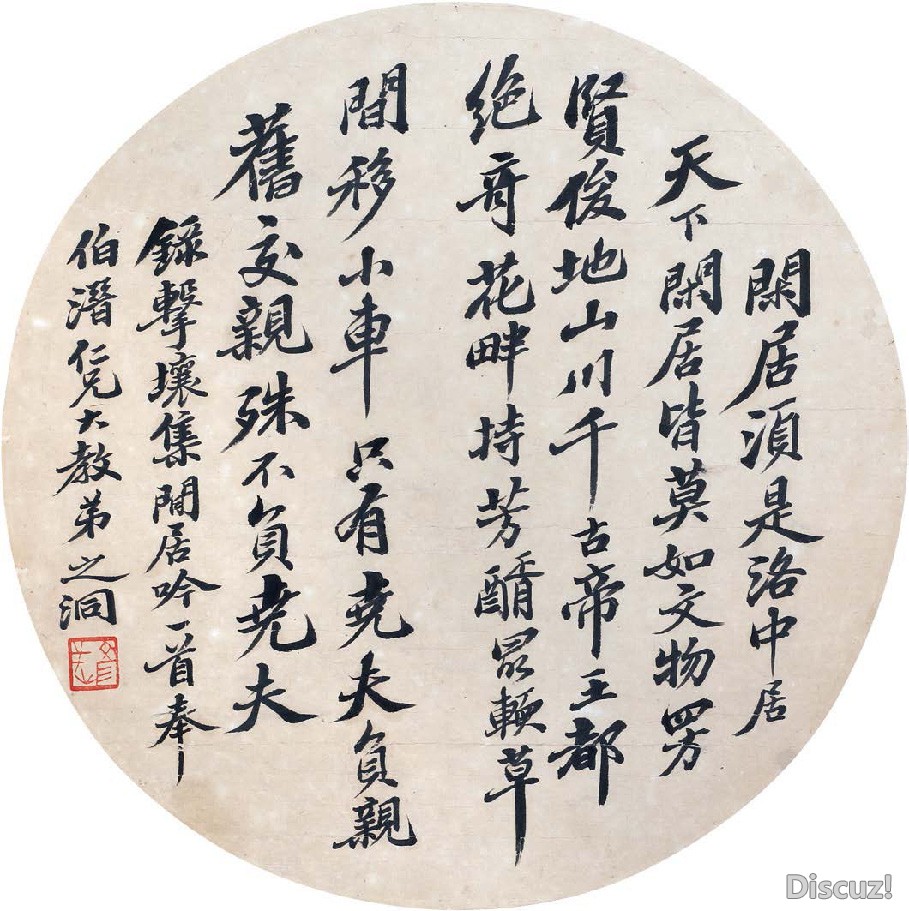 閑居湏是洛中居
天下閑居皆莫如文物四方
賢俊地山川千古帝王都
絶竒花畔持芳醑冣輭草
間移小車只有堯夫負親
舊交親殊不負堯夫
錄擊壤集閒居吟一首奉
伯潛仁兄大教弟之洞
Discuz!